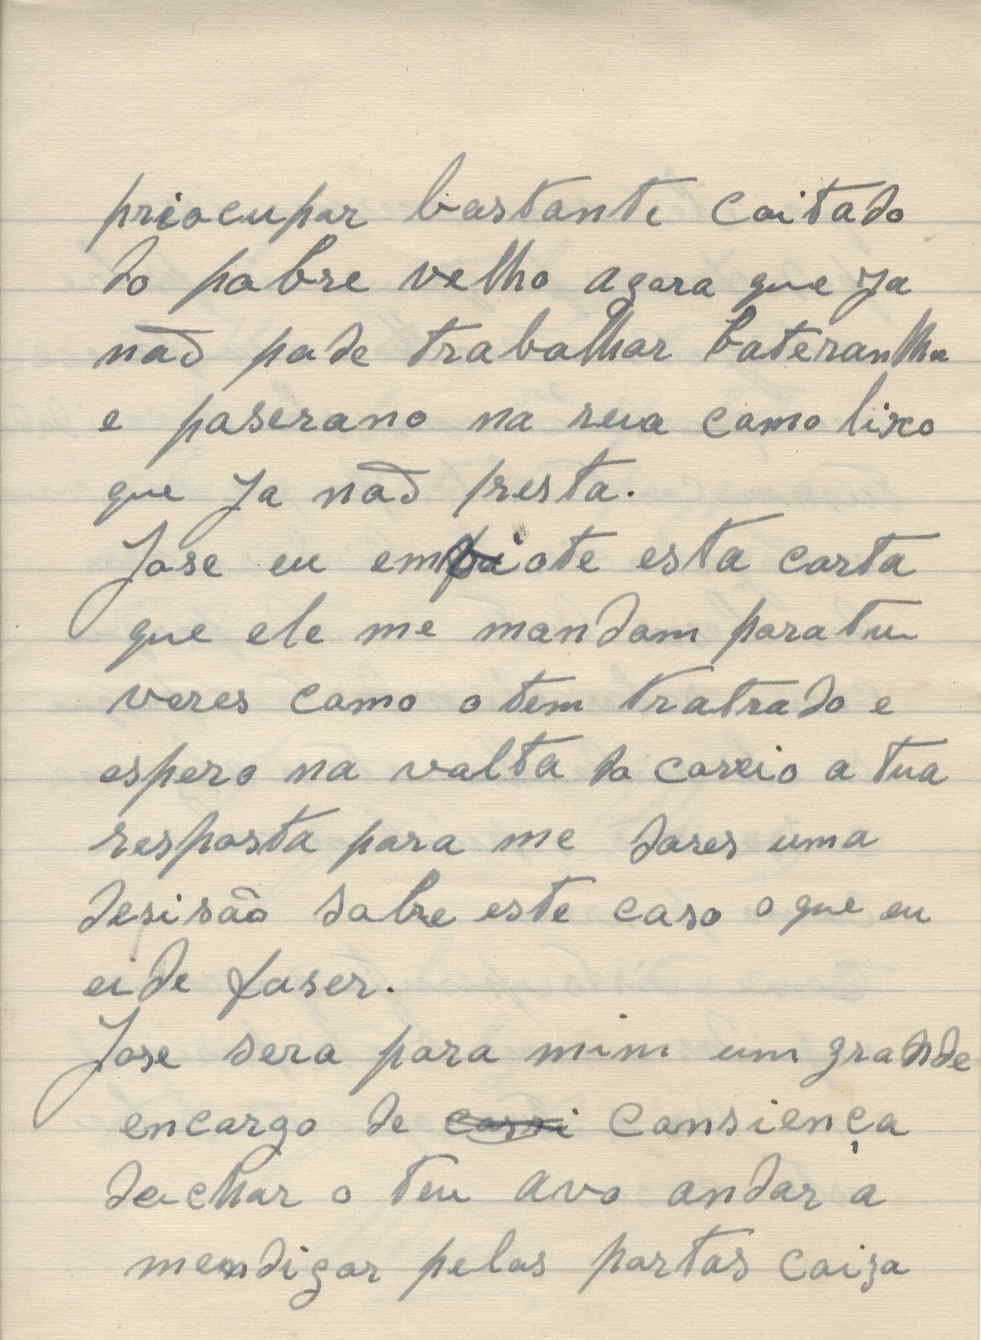 priocupar bastante coitado
do pobre velho agora que ja
não pode trabalhar bateranlhe
e poserano na rua como lixo
que ja não presta.
Jose eu emviote esta carta
que ele me mandam para tu
veres como o tem tratrado e
espero na volta do coreio a tua
resposta para me dares uma
desisão sobre este caso o que eu
ei de faser.
Jose sera para mim um grande
encargo de consiença
deichar o teu avo andar a
mendigar pelas portas coiza